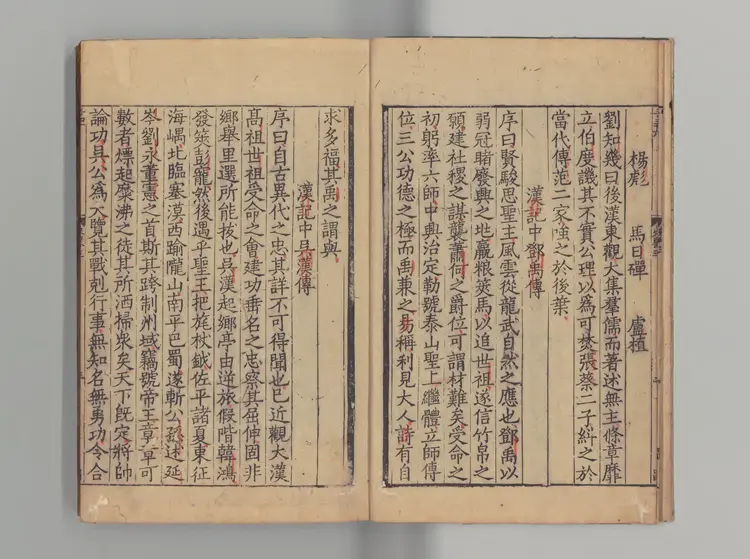 楊彪　馬日磾　盧植
劉知幾曰後漢東觀大集羣儒而著述無主條章靡
立伯度譏其不實公理以爲可焚張蔡二子紏之於
當代傳范二家嗤之於後葉
漢記中鄧禹傳
序曰賢駿思聖主風雲從龍武自然之應也鄧禹以
弱冠睹廢興之地贏粮筴馬以追世祖遂信竹帛之
願建社稷之謀襲蕭何之爵位可謂材難矣受命之
初躬率六師中興治定勒號泰山聖上繼體立師傅
位三公功德之極而禹兼之易稱利見大人詩有自
求多福其禹之謂與
漢記中吳漢傳
序曰自古異代之忠其詳不可得聞也巳近觀大漢
高祖世祖受命之會建功垂名之忠察其屈伸固非
鄉舉里選所能拔也吳漢起鄉亭由逆旅假階韓鴻
發筴彭寵然後遇平聖王把旄杖鉞佐平諸夏東征
海嵎北臨塞漠西踰隴山南平巴蜀遂斬公孫述延
岑劉永董憲之首斯其跨制州域竊號帝王章章可
數者熛起糜沸之徒其所洒掃衆矣天下旣定將帥
論功吳公爲大覽其戰剋行事無知名無勇功令合